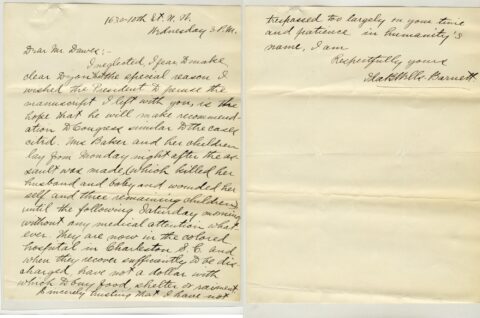 1630-10th St. N. W.
Wednesday 3 P.M.
Dear Mr Dawes:
I neglected I fear to make
clear to you the special reason I
wished the President to peruse the
manuscript I left with you, is the
hope that he will make recommend-
ation to Congress similar to the cases
cited. Mrs Baker and her children
lay from Monday night after the as
sault was made (which killed her
husband and baby and wounded her
self and three remaining children)
until the following Saturday morning
without any medical attention what
ever. They are now in the colored
hospital in Charleston S. C. and
when they recover sufficiently to be dis
charged, have not a dollar with
which to buy food, shelter or raiment
Sincerely trusting that I have not
trespassed too largely on your time
and patience in humanity's
name, I am
Respectfully yours
Ida B. Wells-Barnett